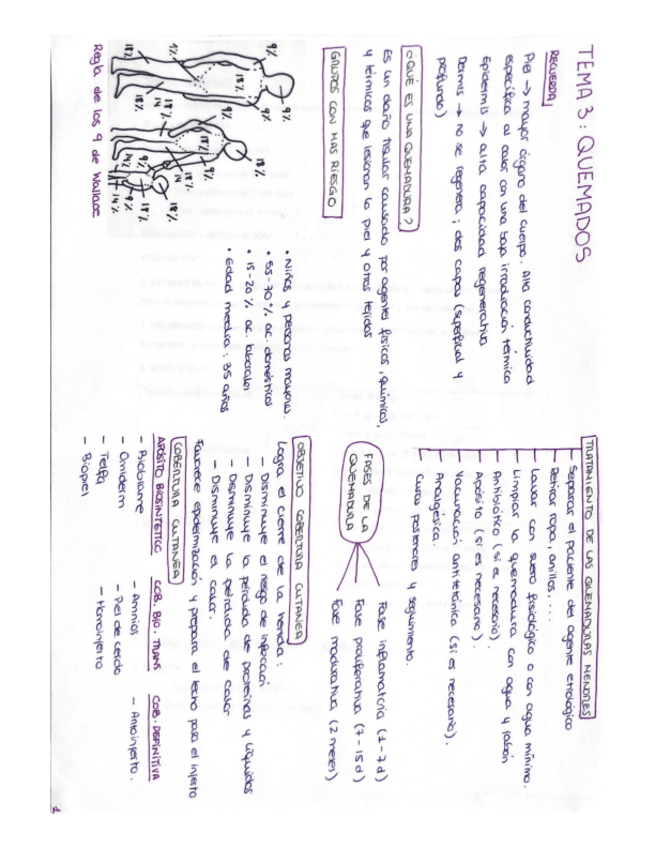 TEMA 3: QUEMADOS
RECUERDA!
Piel → mayor órgano del cuerpo. Alta conductividad
específica al calor con una baja irradiación térmica
Epidermis → alta capacidad regenerativa
Dermis → no se regenera; dos capas (superficial y
profundo)
¿QUÉ ES UNA QUEMADURA?
Es un daño tisular causado por agentes físicos, químicos,
y térmicos que lesionan la piel y otros tejidos
GRUPOS CON MAS RIESGO
• Niños y personas mayores.
• 55-70% ac. domésticos
• 15-20% ac. laborales
• Edad media: 35 años
9%
9%
9%
9%
18%
1%
18%
14
18%
18%
9%
1%
18%
18%
14
18%
9%
18%
14%
9%
14%
Regla de los 9 de Wallace
TRATAMIENTO DE LAS QUEMADURAS MENORES
Separar el paciente del agente etiológico
Retirar ropa, anillos....
Lavar con suero fisiológico o con agua mínimo.
Limpiar la quemadura con agua y jabón
Antibiótico (si es necesario).
Apósito (si es necesario).
Vacunación antitetánica (si es necesario).
Analgésica.
Curas posteriores y seguimiento.
FASES DE LA
QUEMADURA
Fase inflamatoria (1-7d)
Fase proliferativa (7-15d)
Fase madurativa (2 meses)
OBJETIVO COBERTURA CUTANEA
Logra el cierre de la herida:
- Disminuye el riesgo de infección
- Disminuye la pérdida de proteínas y líquidos
- Disminuye la pérdida de calor
- Disminuye el calor.
COBERTURA CUTANEA
Favorece epidermización y prepara el lecho para el injerto
APÓSITO BIOSINTETICO
- Biobrame
- Omiderm
- Telfa
- Biopiel
COB. BIO. TRANS
- Amnios
- Piel de cerdo
- Homoinjerto
COB. DEFINITIVA
- Autoinjerto.